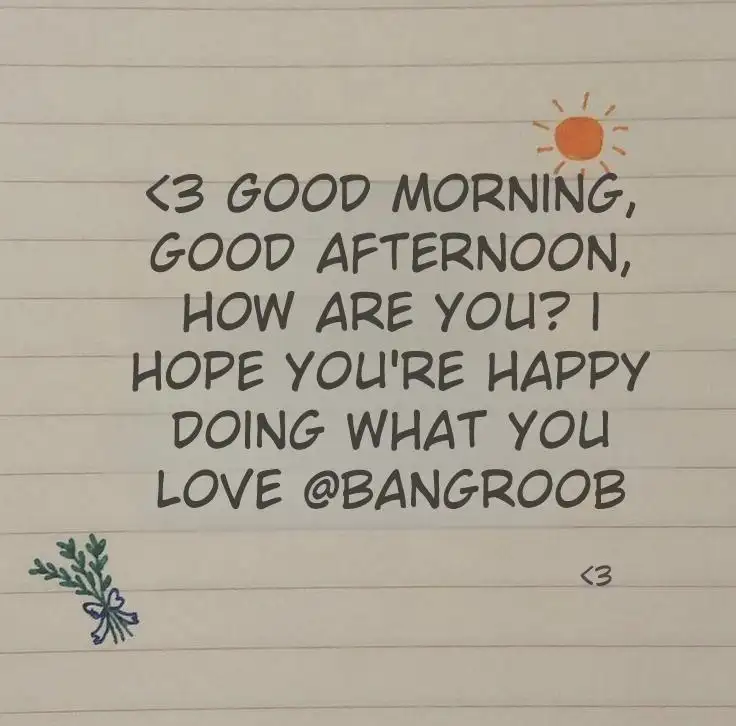 <3 GOOD MORNING,
GOOD AFTERNOON,
HOW ARE YOU? I
HOPE YOU'RE HAPPY
DOING WHAT YOU
LOVE @BANGROOB
<3